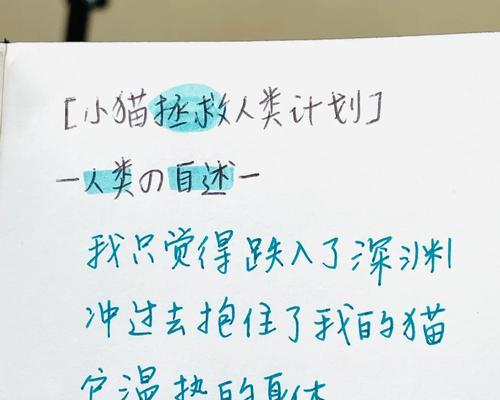 [小猫拯救人类计划]
—人类の自述—
我只觉得跌入了深渊
冲过去抱住了我的猫
它温热的身体